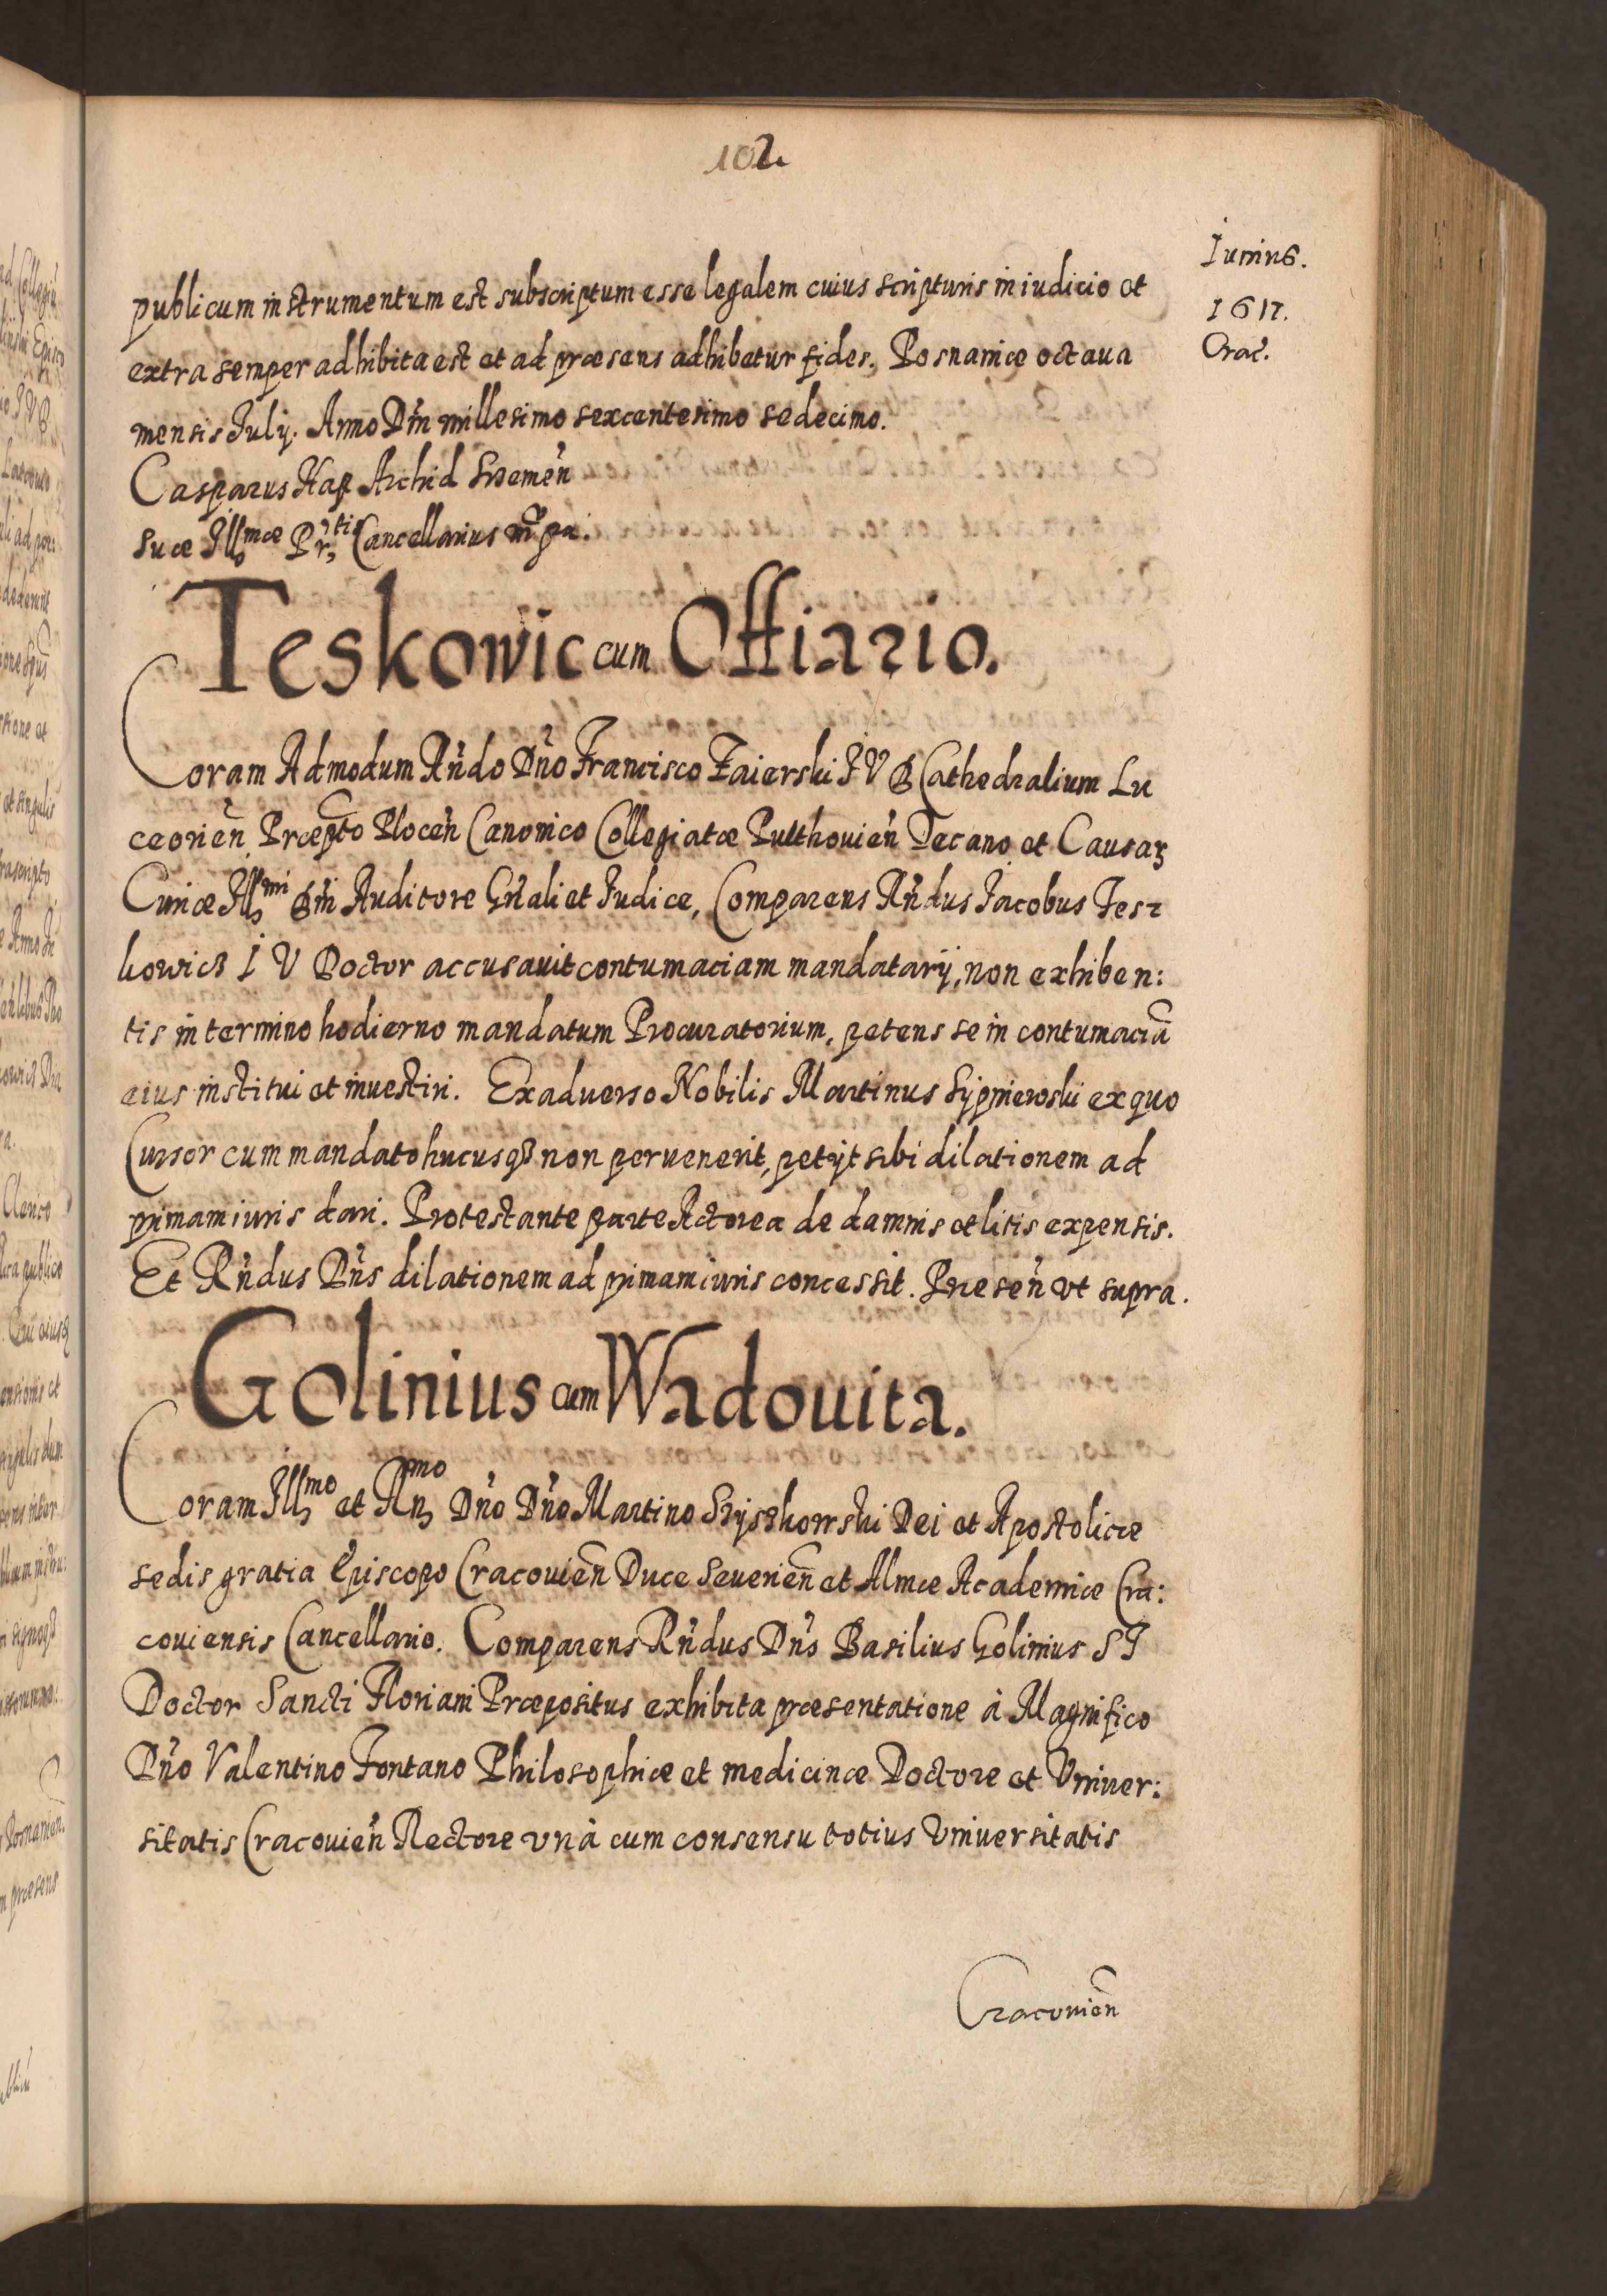 102.
Iunius.
1617.
Crac̃.
publicum instrumentum est subscriptum esse legalem cuius scripturis in iudicio et
extra semper adhibita est et ad præsens adhibetur fides. Posnaniæ octaua
mensis Julÿ. Anno Dñi millesimo sexcentesimo sedecimo.
Casparus Hap Archid Sremeñ
Suæ Illmæ Prtis Cancellarius
Teskowic cum Offiario.
Coram Admodum Rñdo Dño Francisco Zaierski J V D Cathedralium Lu
ceorieñ Præpto Ploceñ Canonico Collegiatæ Pulthouieñ Decano et Causarꝝ
Curiæ Illmi Auditore Gñali et Judice, Comparens Rñdus Jacobus Tesz
kowicz I V Doctor accusauit contumaciam mandatarÿ, non exhiben:
tis in termino hodierno mandatum Procuratorium, petens se in contumaciã
eius institui et inuestiri. Exaduerso Nobilis Martinus Sÿpniewski ex quo
Cursor cum mandato hucusqꝫ non peruenerit, petÿt sibi dilationem ad
primam iuris dari. Protestante parte Actorea de damnis et litis expensis.
Et Rñdus Dñs dilationem ad primam iuris concessit. Præseñ vt supra.
Golinius cum Wadouita.
Coram Illmo et Rnmo Dño Dño Martino Szÿszkowski Dei et Apostolicæ
sedis gratia Episcopo Cracouieñ Duce Seuerieñ et Almæ Academiæ Cra:
couiensis Cancellario. Comparens Rñdus Dñs Basilius Golinius S T
Doctor Sancti Floriani Præpositus exhibita præsentatione à Magnifico
Dño Valentino Fontano Philosophiæ et medicinæ Doctore et Vniuer:
sitatis Cracouieñ Rectore vnà cum consensu totius Vniuersitatis
Cracouieñ